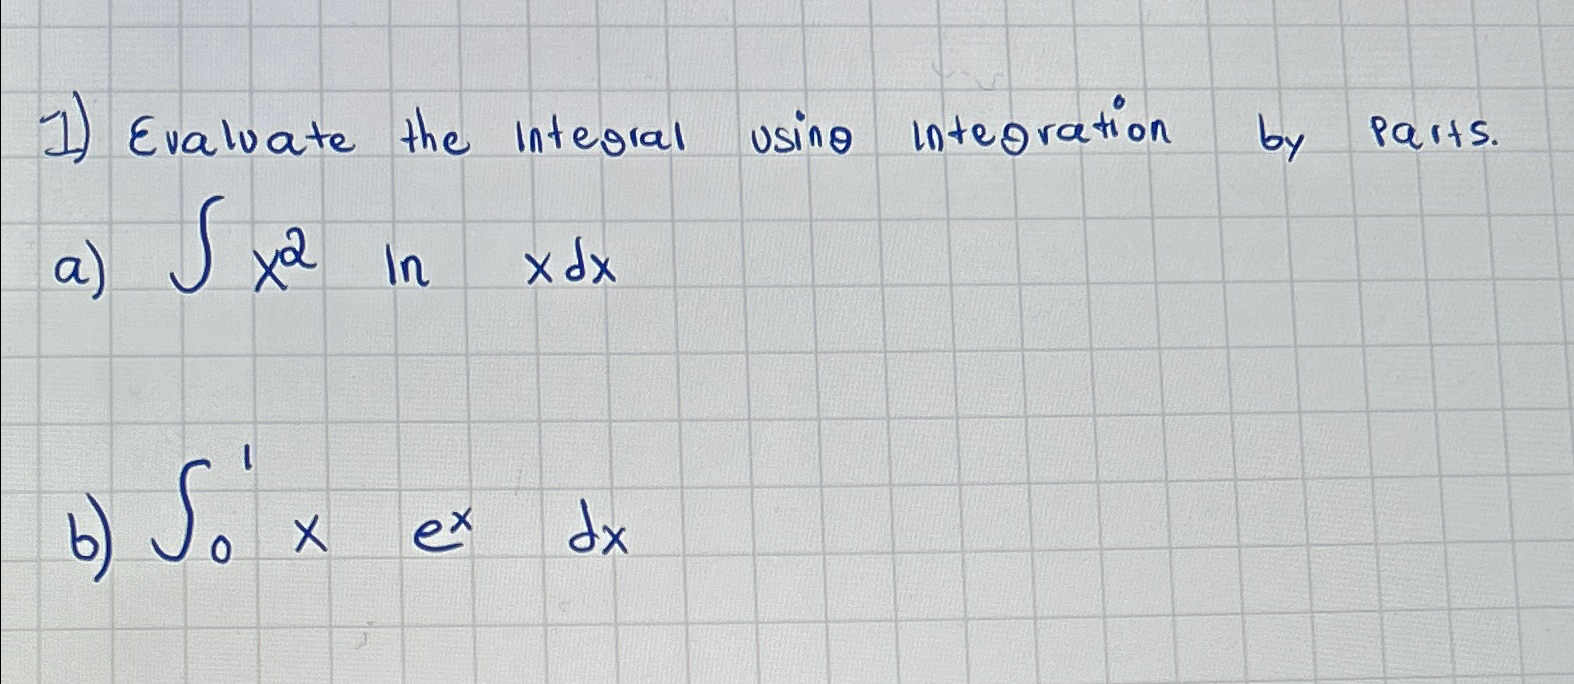 1) Evaluate the Integral using Integration by Parts.
a) ∫ x² ln x dx
b) ∫₀¹ x eˣ dx